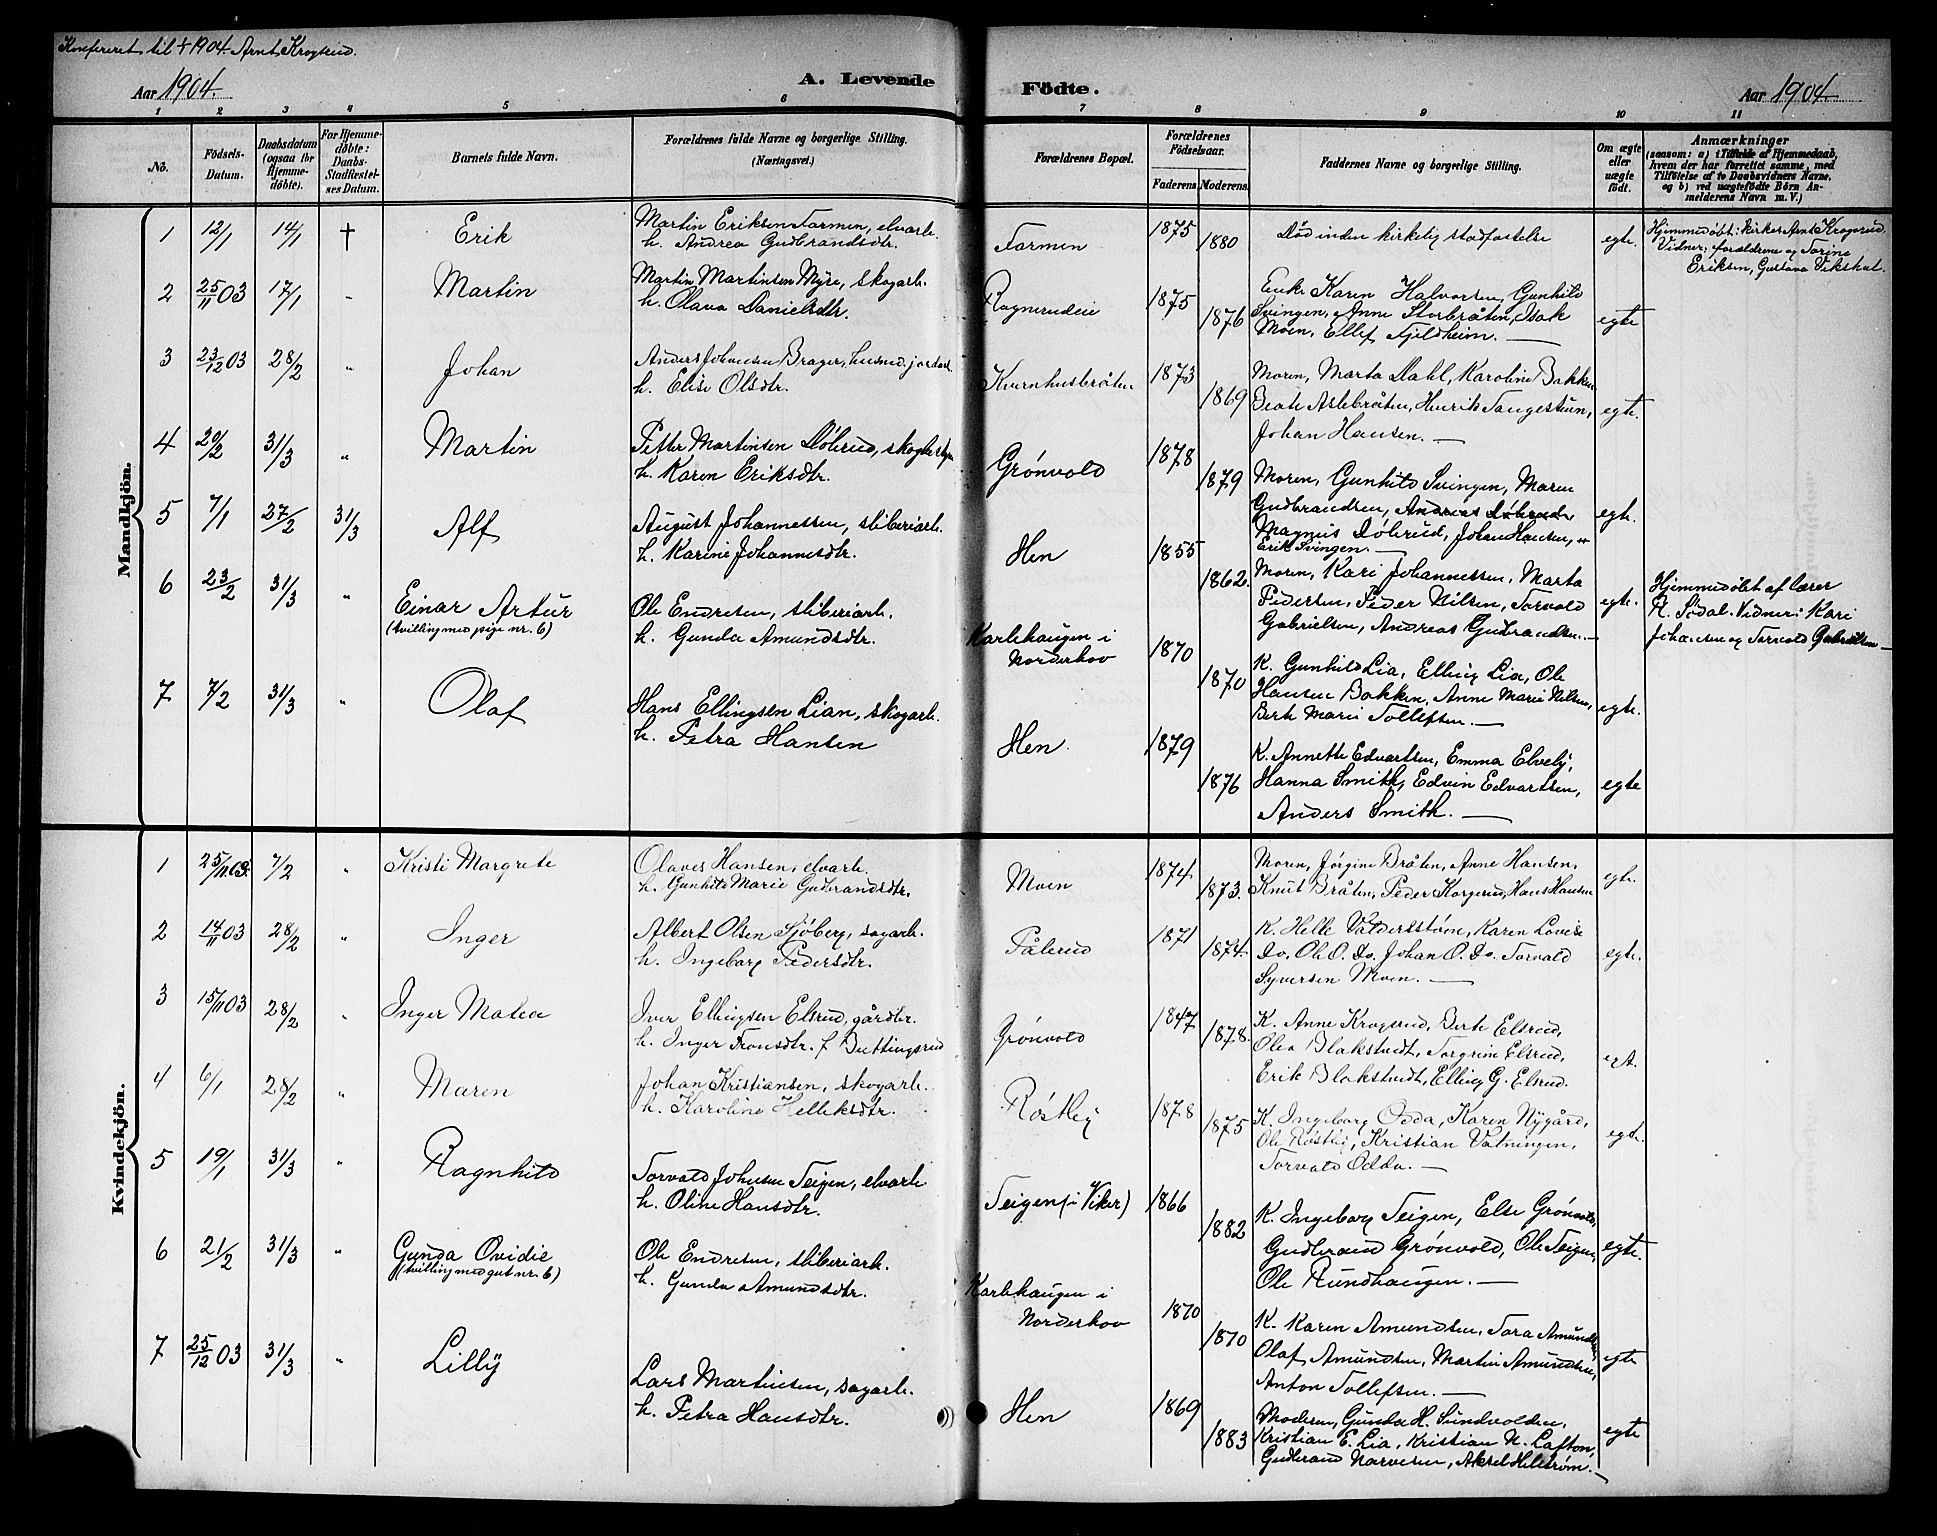 Konfereret til 1904. Arnt Krogsrud.
Aar 1904.
A. Levende
Födte.
Aar 1904
1 2 3 4 5 6 7 8 9 10 11
No.
Födsels-
Datum.
Daabsdatum
(ogsaa for
Hjemme-
døbte).
For Hjemme-
døbte:
Daabs-
Stadfæstel-
ses Datum.
Barnets fulde Navn.
Forældrenes fulde Navne og borgerlige Stilling.
(Næringsvei.)
Forældrenes Bopæl.
Forældrenes
Födselsaar.
Faderens. Moderens.
Faddernes Navne og borgerlige Stilling.
Om ægte
eller
uægte
født.
Anmærkninger
(saasom: a) i Tilfælde af Hjemmedaab,
hvem der har forrettet samme, med
Tilföielse af to Daabsvidners Navne,
og b) ved uægtefødte Börn An-
melderens Navn m. V.)
Mandkjön.
1 12/1 14/1 † Erik
Martin Eriksen Tarmen, elvarb.
h. Andrea Gudbrandsdtr.
Tarmen 1875 1880
Död inden kirkelig stadfæstelse
egte.
Hjemmedøbt: Kirkes. Arnt Krogsrud.
Vidner: forældrene og Torine
Eriksen, Gustava Vikshul.
2 25/11 03 17/1 - Martin
Martin Martinsen Myre, skogarb.
h. Olava Danielsdtr.
Ragnerudeie 1875 1876
Enke Karen Halvorsen, Gunhild
Svingen, Anne Storbråten, Isak
Moen, Ellef Fjeldheim. —
egte
3 23/12 03 28/2 " Johan
Anders Johansen Brager, husmd. jordarb.
h. Elise Olsdtr.
Kvernhusbråten 1873 1869
Moren, Marta Dahl, Karoline Bakken
Beate Aslebråten, Henrik Tangestuen,
Johan Hansen. —
egte.
4 20/2 31/3 " Martin
Petter Martinsen Döhrud,
h. Karen Eriksdtr.
Grönvold 1878 1879
Moren, Gunhild Svingen, Maren
Gudbrandsen, Andreas Döhrud
Magnus Döhrud, Johan Hansen,
Erik Svingen. —
egte.
5 7/1 27/2 31/3 Alf
August Johannessen, sliberiarb.
h. Karine Johannesdtr.
Hen 1855 1862.
Moren, Kari Johannessen, Marta
Pedersen, Peder Nilsen, Torvald
Gabrielsen, Andreas Gudbrandsen. —
egte.
Hjemmedøbt af lærer
A. Södal. Vidner: Kari
Johansen og Torvald Gabrielsen —
6 23/2 31/3 " Einar Artur
(tvilling med pige nr. 6)
Ole Endresen, sliberiarb.
h. Gunda Amundsdtr.
Karlehaugen i
Norderhov 1870 1870
K. Gunhild Lia, Elling Lia, Ole
Hansen Bakken, Anne Marie Nilsen,
Berte Marie Tollefsen. —
egte.
7 7/2 31/3 " Olaf
Hans Ellingsen Lian, skogarb.
h. Petra Hansen
Hen. 1879 1876
K. Annette Edvartsen, Emma Elvely,
Hanna Smith, Edvin Edvartsen,
Anders Smith. —
egte
Kvindekjön.
1 25/11.03. 7/2 " Kristi Margrete
Olaves Hansen, elvarb.
h. Gunhild Marie Gudbrandsdtr.
Moen 1874 1873.
Moren, Jörgine Bråten, Anne Hansen,
Knut Bråten, Peder Korgerud, Hans Hansen
egte.
2 14/11 03 28/2 " Inger
Albert Olsen Sjöberg, sagarb.
h. Ingeborg Pedersdtr.
Pålerud 1871 1874.
K. Helle Valdersstöen, Karen Lovise
Do, Ole O. Do. Johan O. Do. Torvald
Syversen Moen. —
egte.
3 15/11 03 28/2 " Inger Matea
Iver Ellingsen Elsrud, gårdbr.
h. Inger Tronsdtr. f. Buttingsrud
Grönvold 1847 1878.
K. Anne Krogsrud, Berte Elsrud,
Olea Blakstvedt, Torgrim Elsrud,
Erik Blakstvedt, Elling G. Elsrud.
egt.
4 6/1 28/2 " Maren
Johan Kristiansen, skogarb.
h. Karoline Helleksdtr.
Röstley 1878 1875
K. Ingeborg Odda, Karen Nygård,
Ole Röstley, Kristian Vatningen,
Torvald Odda. —
egte.
5 19/1 31/3 " Ragnhild
Torvald Johnsen Teigen, elvarb
h. Oline Hansdtr.
Teigen (i Viker) 1866 1882
K. Ingeborg Teigen, Else Grönvold,
Gudbrand Grönvold, Ole Teigen,
Ole Rundhaugen. —
egte.
6 21/2 31/3 " Gunda Ovidie
(tvilling med gut nr. 6)
Ole Endresen, sliberiarb.
h. Gunda Amundsdtr.
Karlehaugen i
Norderhov 1870 1870
K. Karen Amundsen, Tora Amundsen
Olaf Amundsen, Martin Amundsen,
Anton Tollefsen. —
egte
7 25/12 03 31/3 " Lilly
Lars Martinsen, sagarb.
h. Petra Hansdtr.
Hen 1869 1883
Moderen, Gunda H. Sundvolden,
Kristian E. Lia, Kristian N. Lafton,
Gudbrand Narvesen, Aksel Hilström. —
egte